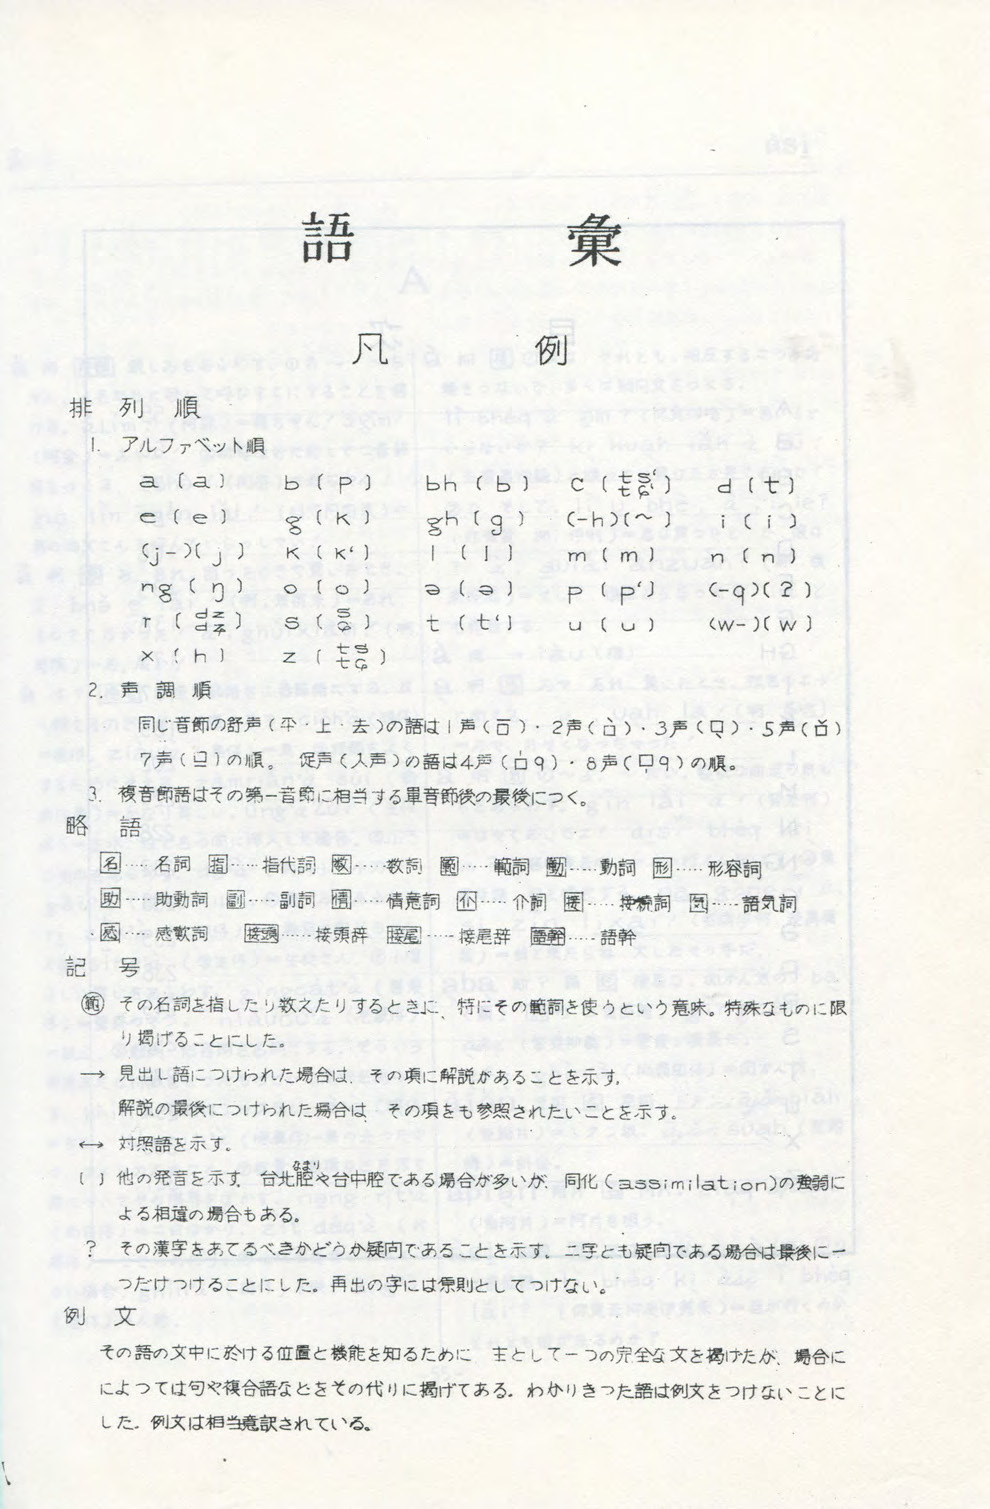 語彙
凡例
排列順
1. アルファベット順
a (a) b (p) bh (b) c (tsʻ tɕʻ) d (t)
e (e) g (k) gh (g) (-h)(~) i (i)
(j-)(j) k (kʻ) l (l) m (m) n (n)
ng (ŋ) o (o) ə (ə) p (pʻ) (-q)(ʔ)
r (dz dʑ) s (s ɕ) t (tʻ) u (u) (w-)(w)
x (h) z (ts tɕ)
2. 声調順
同じ音節の舒声(平・上・去)の語は1声(口̄)・2声(口̀)・3声(口̠)・5声(口̌)
7声(口̲)の順。 促声(入声)の語は4声(口̍q)・8声(口q)の順。
3. 複音節語はその第一音節に相当する単音節後の最後につく。
略語
名……名詞 指……指代詞 数……数詞 範……範詞 動……動詞 形……形容詞
助……助動詞 副……副詞 情……情意詞 介……介詞 接……接続詞 気……語気詞
感……感歎詞 接頭……接頭辞 接尾……接尾辞 語幹……語幹
記号
範 その名詞を指したり数えたりするときに、特にその範詞を使うという意味。特殊なものに限
り掲げることにした。
→ 見出し語につけられた場合は、その項に解説があることを示す,
解説の最後につけられた場合は その項をも参照されたいことを示す。
↔ 対照語を示す。
( ) 他の発音を示す 台北腔なまりや台中腔である場合が多いが、同化(assimilation)の強弱に
よる相違の場合もある。
? その漢字をあてるべきかどうか疑問であることを示す。二字とも疑問である場合は最後に一
つだけつけることにした。再出の字には原則としてつけない。
例文
その語の文中に於ける位置と機能を知るために 主として一つの完全な文を掲げたが、場合に
によつては句や複合語などをその代りに掲げてある。わかりきつた語は例文をつけないことに
した。例文は相当意訳されている。